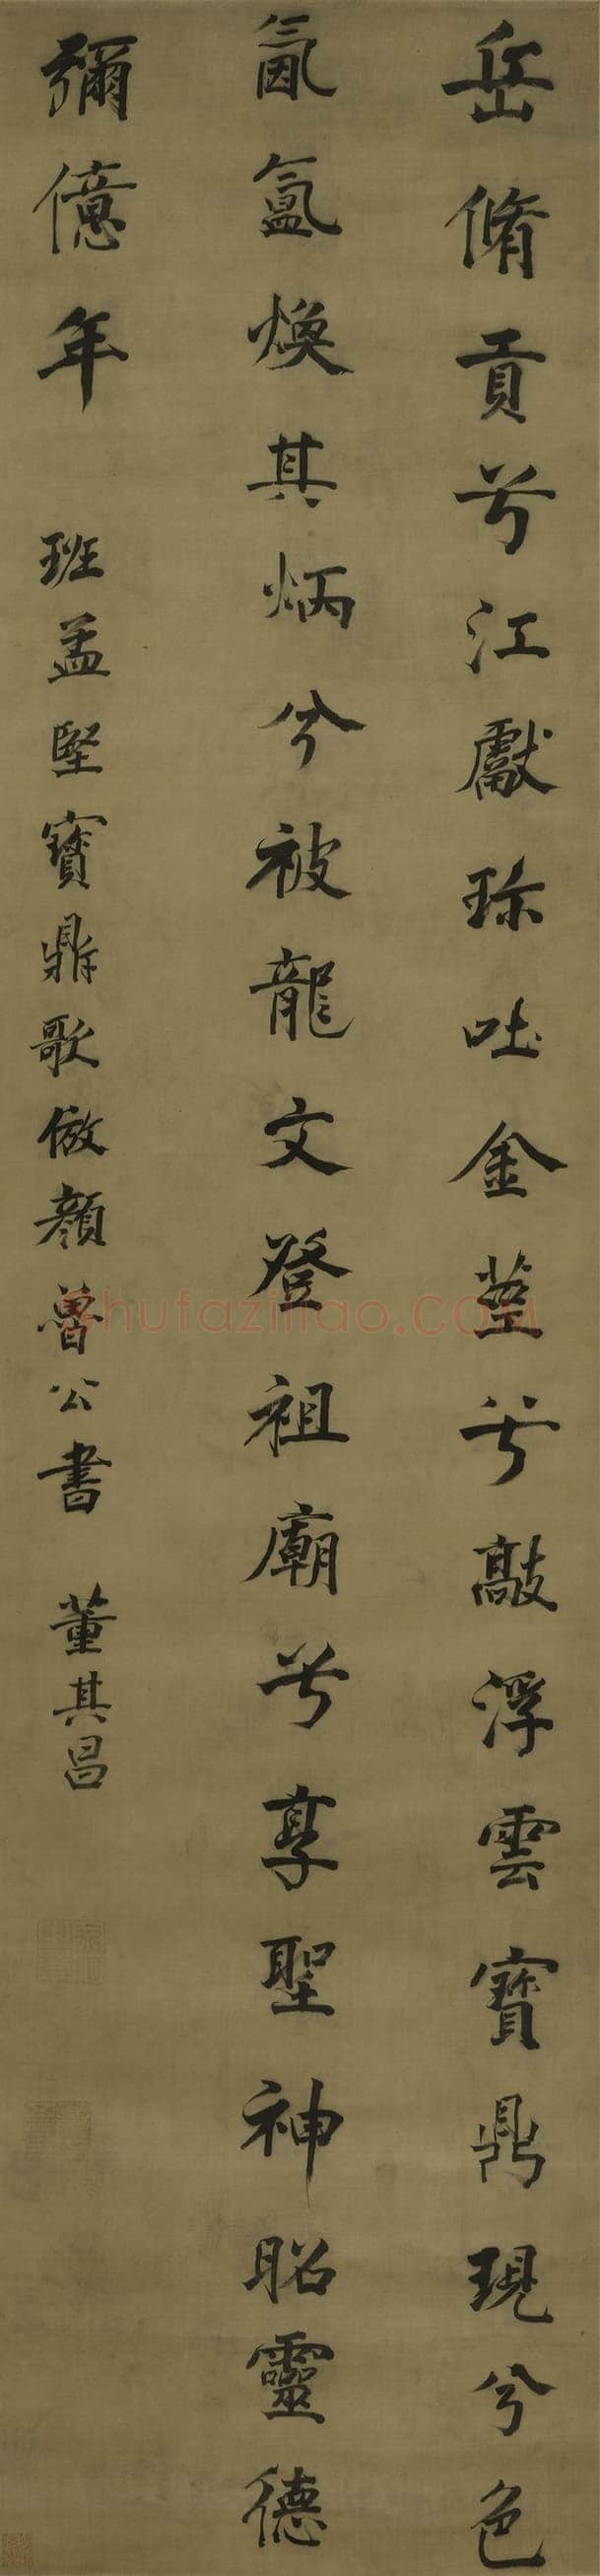 岳脩貢兮江獻珎吐金莖兮敲浮雲寶鼎現兮色
氤氳煥其炳兮被龍文登祖廟兮享聖神昭靈德
彌億年 班孟堅寶鼎歌倣顏魯公書 董其昌
shufaziliao.com